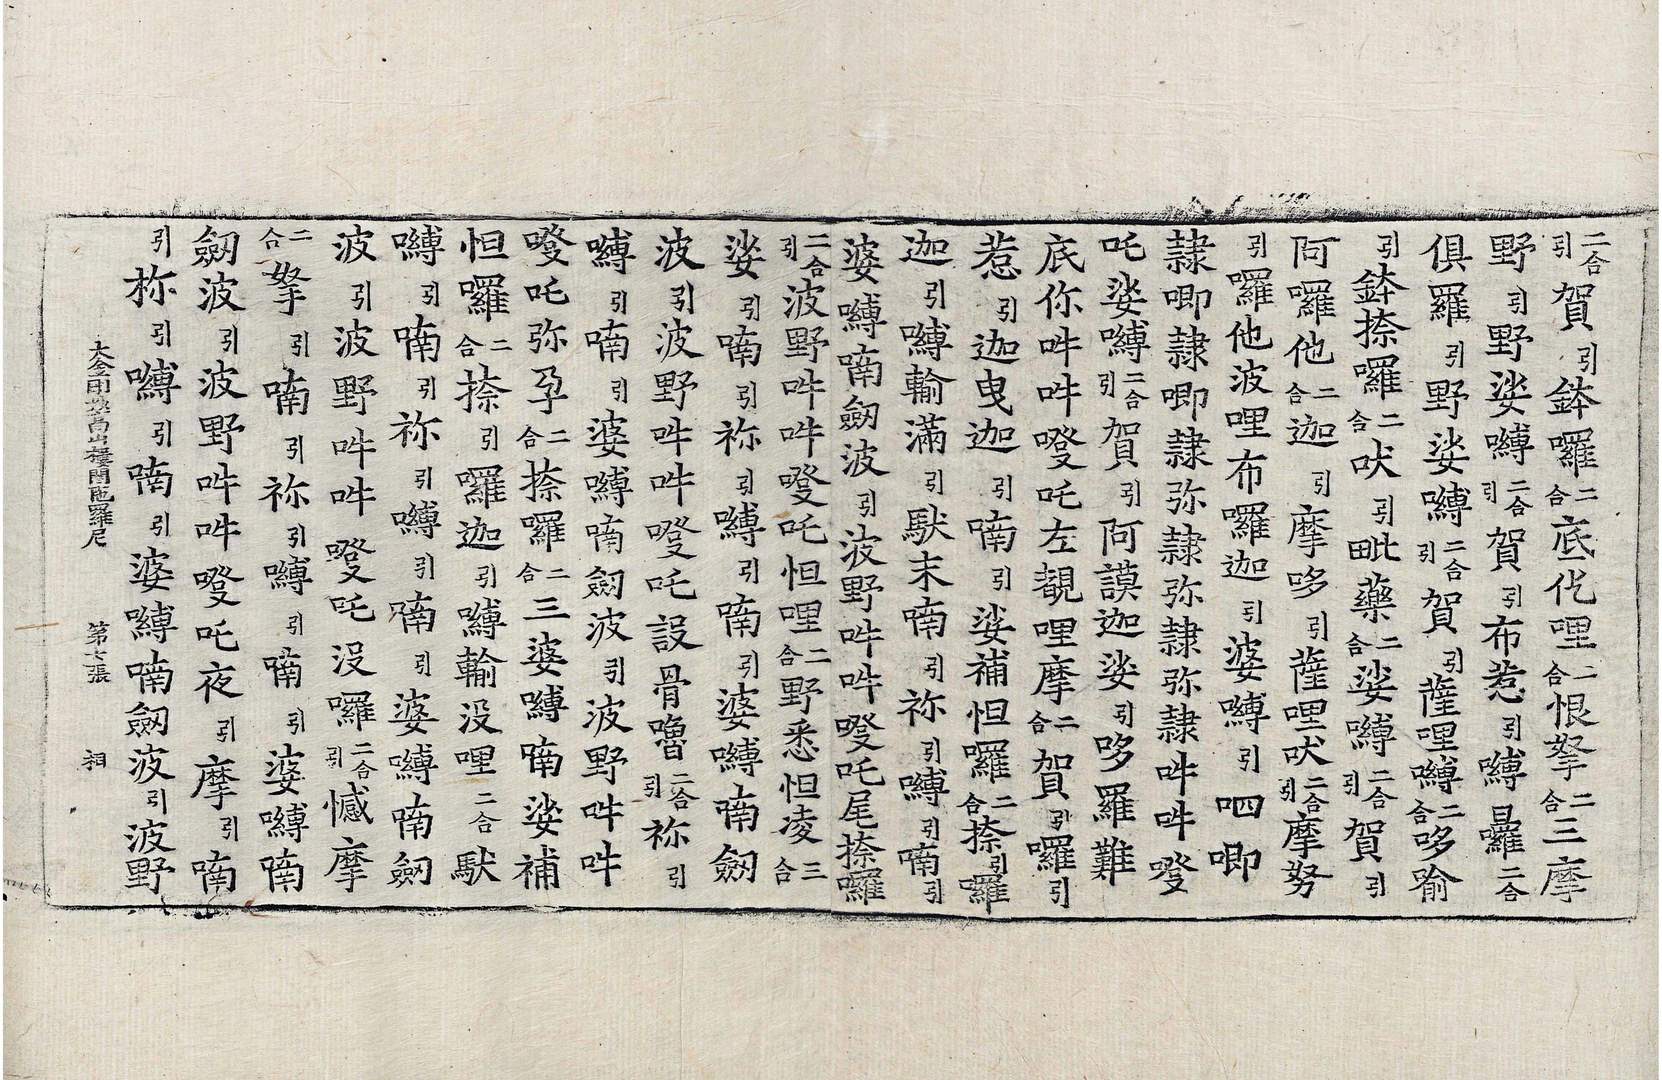 二合引賀引鉢囉二合底仡哩二合恨拏二合三摩
野引野娑嚩二合引賀引布惹引嚩曩二合
俱羅引野娑嚩二合引賀引薩哩嚩二合哆喻
引鉢捺囉二合吠引毗藥二合娑嚩二合引賀引
阿囉他二合迦引摩哆引薩哩吠二合引摩努
引囉他波哩布囉迦引婆嚩引呬唧
隸唧隸唧隸弥隸弥隸弥隸吽吽㗶
吒娑嚩二合引賀引阿謨迦娑引哆羅難
底你吽吽㗶吒左覩哩摩二合賀引囉引
惹引迦曳迦引喃引娑補怛囉二合捺引囉
迦引嚩輸滿引馱末喃引祢引嚩引喃引
婆嚩喃劒波引波野吽吽㗶吒尾捺囉
二合引波野吽吽㗶吒怛哩二合野悉怛凌三合
娑引喃引祢引嚩引喃引婆嚩喃劒
波引波野吽吽㗶吒設骨嚕二合引祢引
嚩引喃引婆嚩喃劒波引波野吽吽
㗶吒弥孕二合捺囉二合三婆嚩喃娑補
怛囉二合捺引囉迦引嚩輸没哩二合馱
嚩引喃引祢引嚩引喃引婆嚩喃劒
波引波野吽吽㗶吒没囉二合引憾摩
二合拏引喃引祢引嚩引喃引婆嚩喃
劒波引波野吽吽㗶吒夜引摩引喃
引祢引嚩引喃引婆嚩喃劒波引波野
大金剛妙高山樓閣陁羅尼 第七張 相